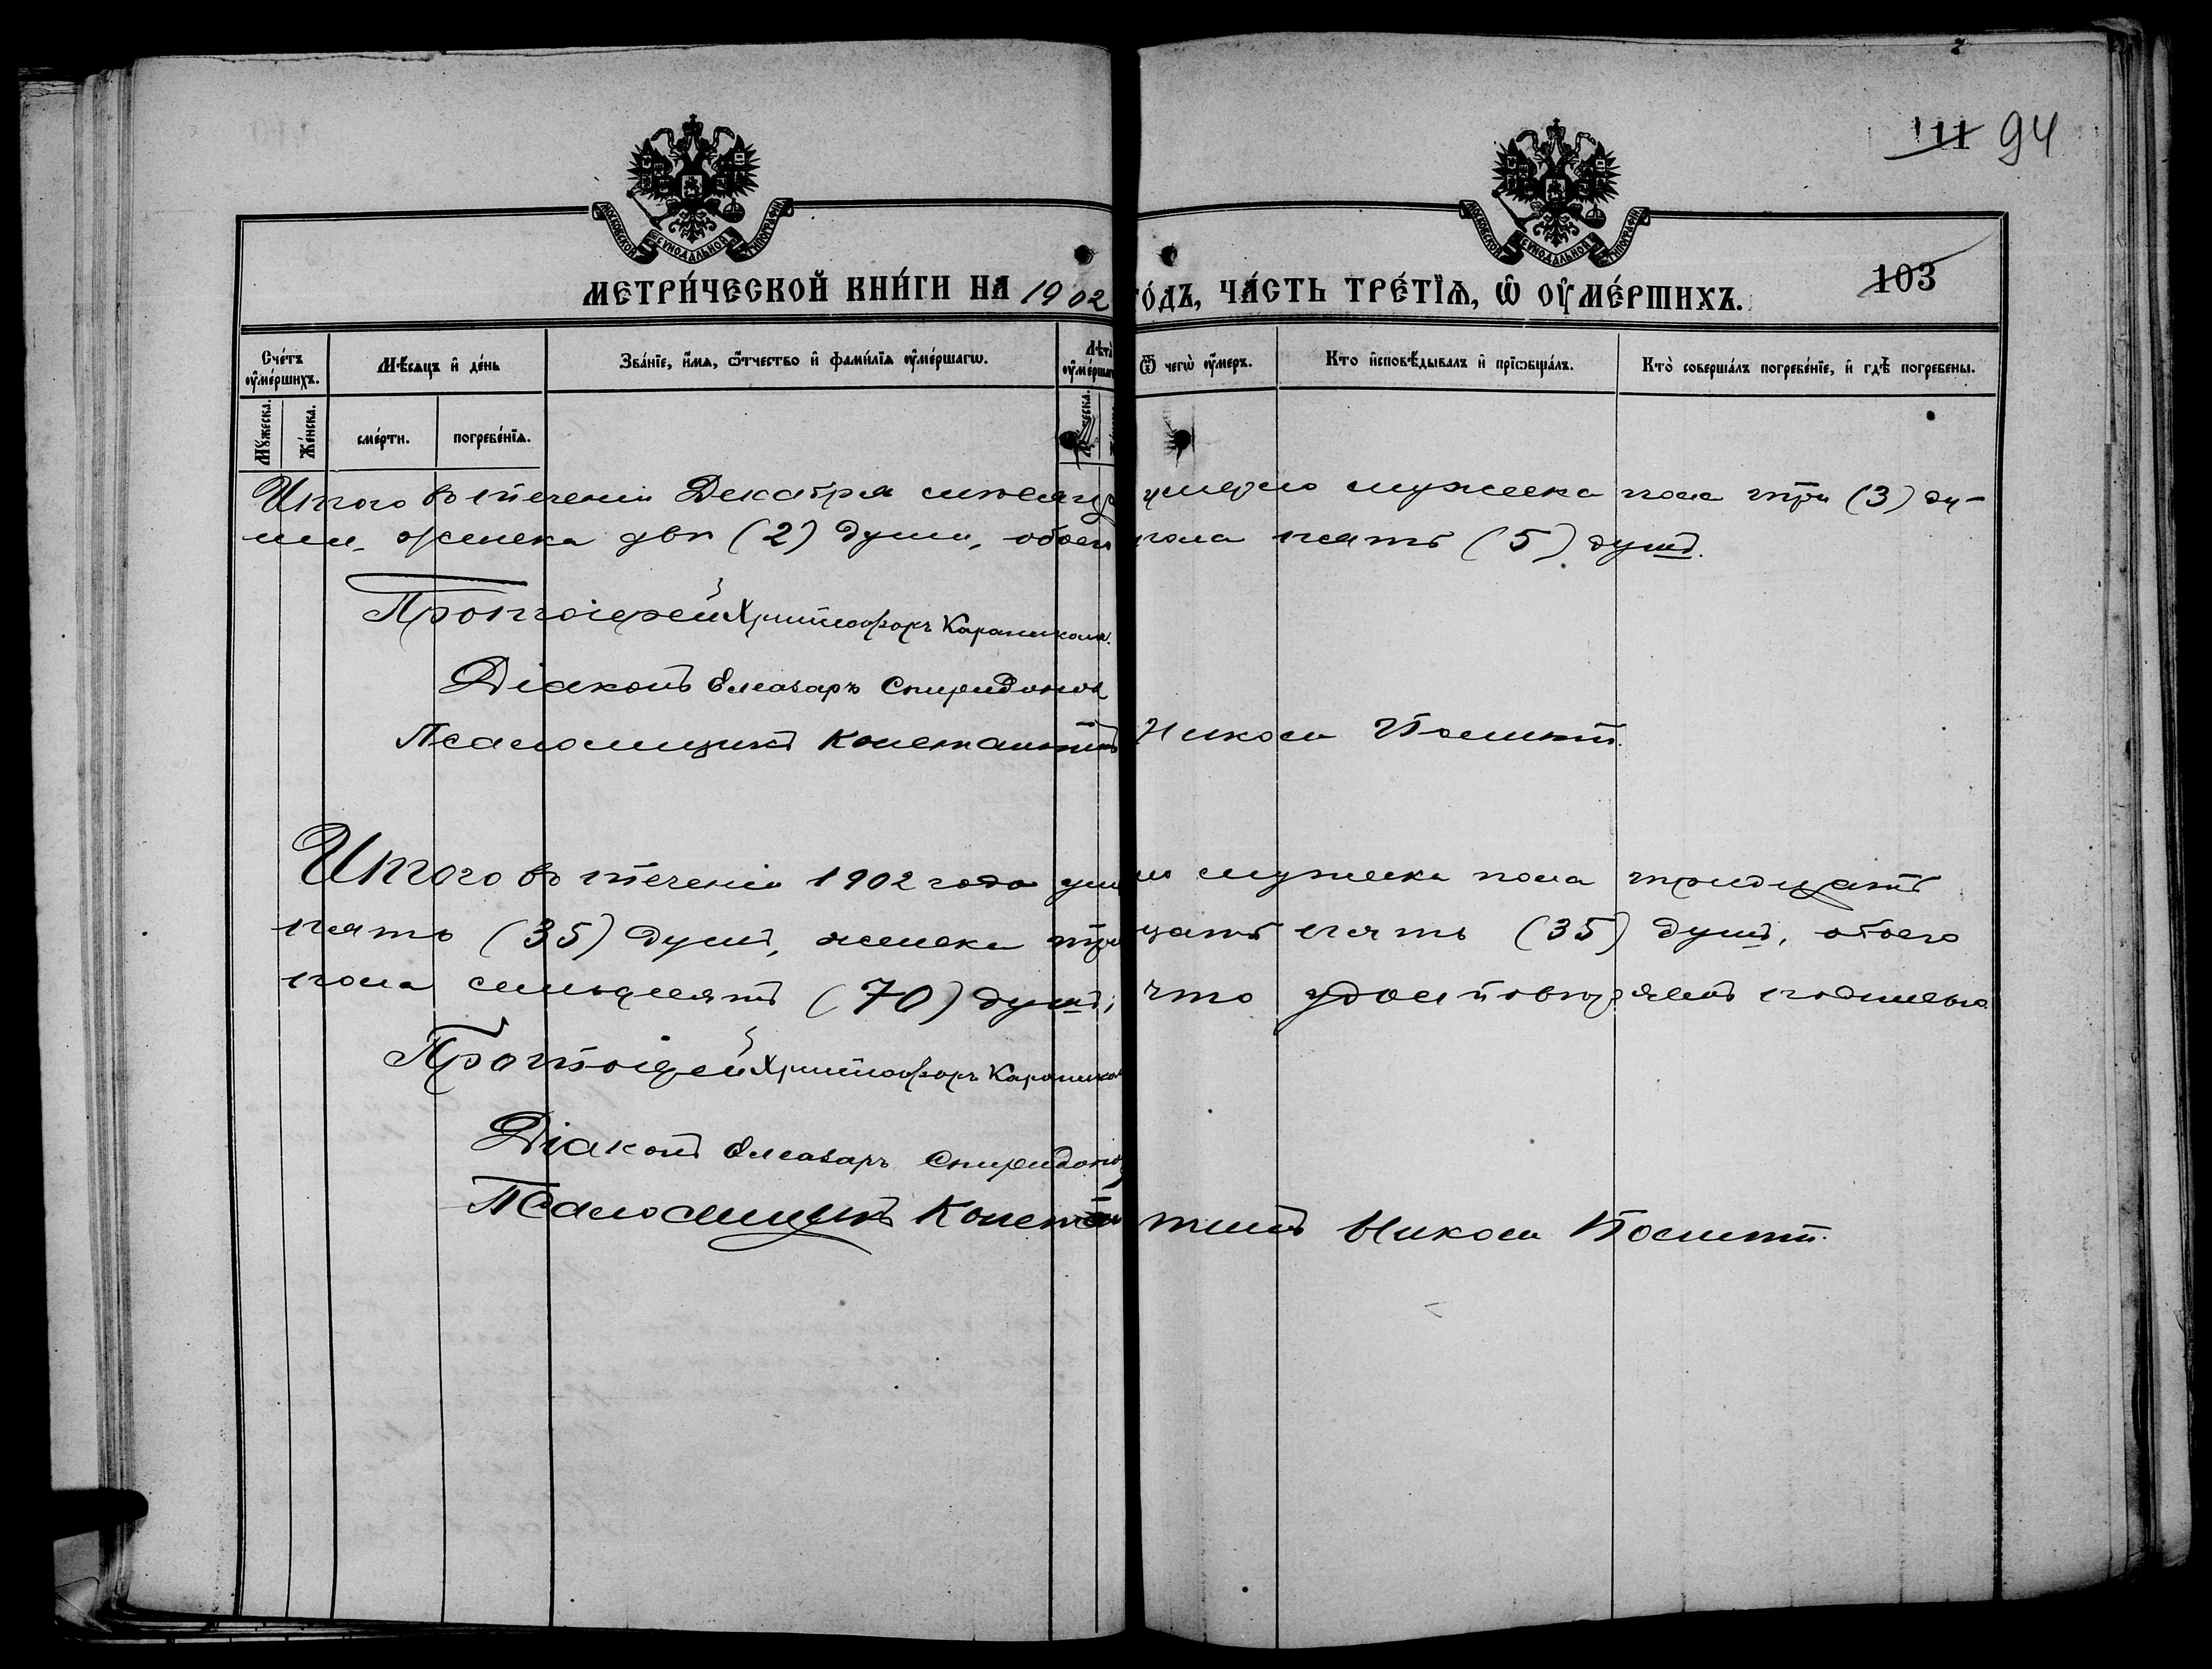 111 94
МОСКОВСКОЙ СѴНОДАЛЬНОЙ ТИПОГРАФІИ
МОСКОВСКОЙ СѴНОДАЛЬНОЙ ТИПОГРАФІИ
МЕТРИ́ЧЕСКОЙ КНИ́ГИ НА 1902 ГО́ДЪ, ЧА́СТЬ ТРЕ́ТЇѦ, Ѿ ОУ҆МЕ́РШИХЪ.
103
Сче́тъ оу҆ме́ршихъ.
Мѣ́сяцъ и҆ де́нь
Зва́нїе, и҆́мѧ, ѻ҆́тчество и҆ фами́лїѧ оу҆ме́ршагѡ.
Лѣта̀ оу҆ме́ршагѡ
Ѿ чегѡ̀ оу҆́меръ.
Кто̀ и҆сповѣ́дывалъ и҆ прїѡбща́лъ.
Кто̀ соверша́лъ погребе́нїе, и҆ гдѣ̀ погребены̀.
Мꙋ́жеска.
Же́нска.
сме́рти.
погребе́нїѧ.
Итого въ теченіи Декабря мѣсяца умерло мужеска пола три (3) ду-
ши, женска двѣ (2) души, обоего пола пять (5) душъ.
Протоіерей Христофоръ Караникола.
Діаконъ Елеазаръ Спиридоновъ
Псаломщикъ Константинъ Никола Полити.
Итого въ теченіи 1902 года умерло мужеска пола тридцать
пять (35) душъ, женска тридцать пять (35) душъ, обоего
пола семьдесятъ (70) душъ; что удостовѣряемъ подписью.
Протоіерей Христофоръ Караникола
Діаконъ Елеазаръ Спиридоновъ
Псаломщикъ Константинъ Никола Полити.